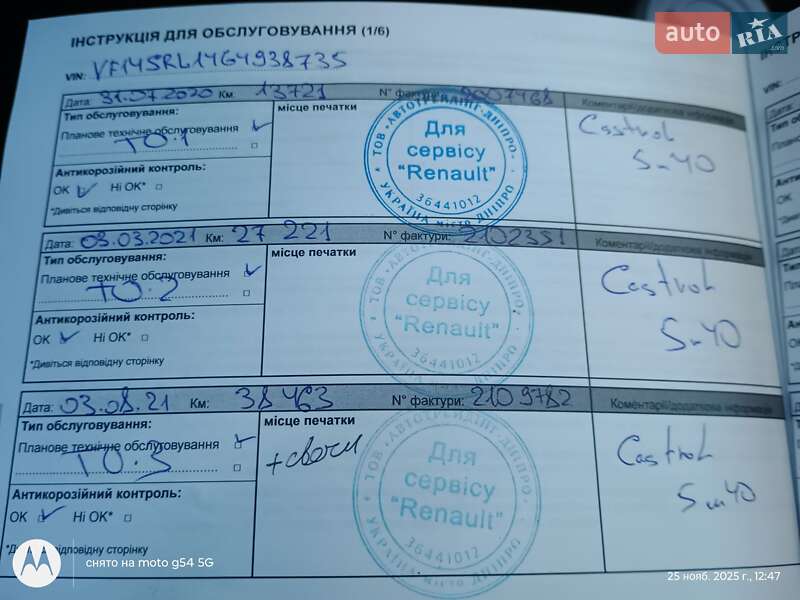 ІНСТРУКЦІЯ ДЛЯ ОБСЛУГОВУВАННЯ (1/6)
auto RIA .com
VIN: VF14SRL1464938735
Дата: 31.07.2020 Км: 13721 N° фактури: 2007468 Коментарі/додаткова інформація
Тип обслуговування:
Планове технічне обслуговування
ТО.1
місце печатки
Антикорозійний контроль:
ОК Ні ОК*
*Дивіться відповідну сторінку
ТОВ "АВТОТРЕЙДІНГ-ДНІПРО"
Для
сервісу
"Renault"
36441012
УКРАЇНА місто ДНІПРО
Castrol
5w40
Дата: 03.03.2021 Км: 27 221 N° фактури: 2102351 Коментарі/додаткова інформація
Тип обслуговування:
Планове технічне обслуговування
ТО.2
місце печатки
Антикорозійний контроль:
ОК Ні ОК*
*Дивіться відповідну сторінку
ТОВ "АВТОТРЕЙДІНГ-ДНІПРО"
Для
сервісу
"Renault"
36441012
УКРАЇНА місто ДНІПРО
Castrol
5w40
Дата: 03.08.21 Км: 38463 N° фактури: 2109782 Коментарі/додаткова інформація
Тип обслуговування:
Планове технічне обслуговування
ТО.3
місце печатки
+свечи
Антикорозійний контроль:
ОК Ні ОК*
відповідну сторінку
ТОВ "АВТОТРЕЙДІНГ-ДНІПРО"
Для
сервісу
"Renault"
36441012
УКРАЇНА місто ДНІПРО
Castrol
5w40
снято на moto g54 5G
25 нояб. 2025 г., 12:47